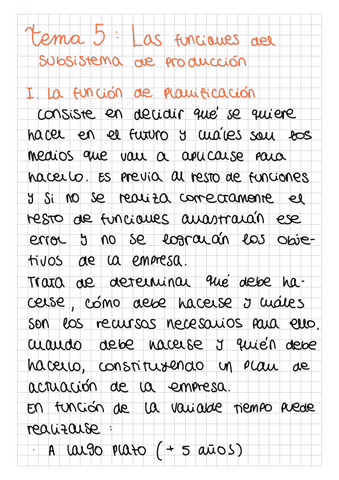 tema 5: Las funciones del
subsistema de producción
I. La función de planificación
Consiste en decidir qué se quiere
hacer en el futuro y cuáles son los
medios que van a aplicarse para
hacerlo. Es previa al resto de funciones
y si no se realiza correctamente el
resto de funciones arrastrarán ese
error y no se lograrán los obje-
tivos de la empresa.
Trata de determinar qué debe ha-
cerse, cómo debe hacerse y cuáles
son los recursos necesarios para ello,
cuando debe hacerse y quién debe
hacerlo, constituyendo un plan de
actuación de la empresa.
En función de la variable tiempo puede
realizarse:
· A largo plato (+ 5 años)